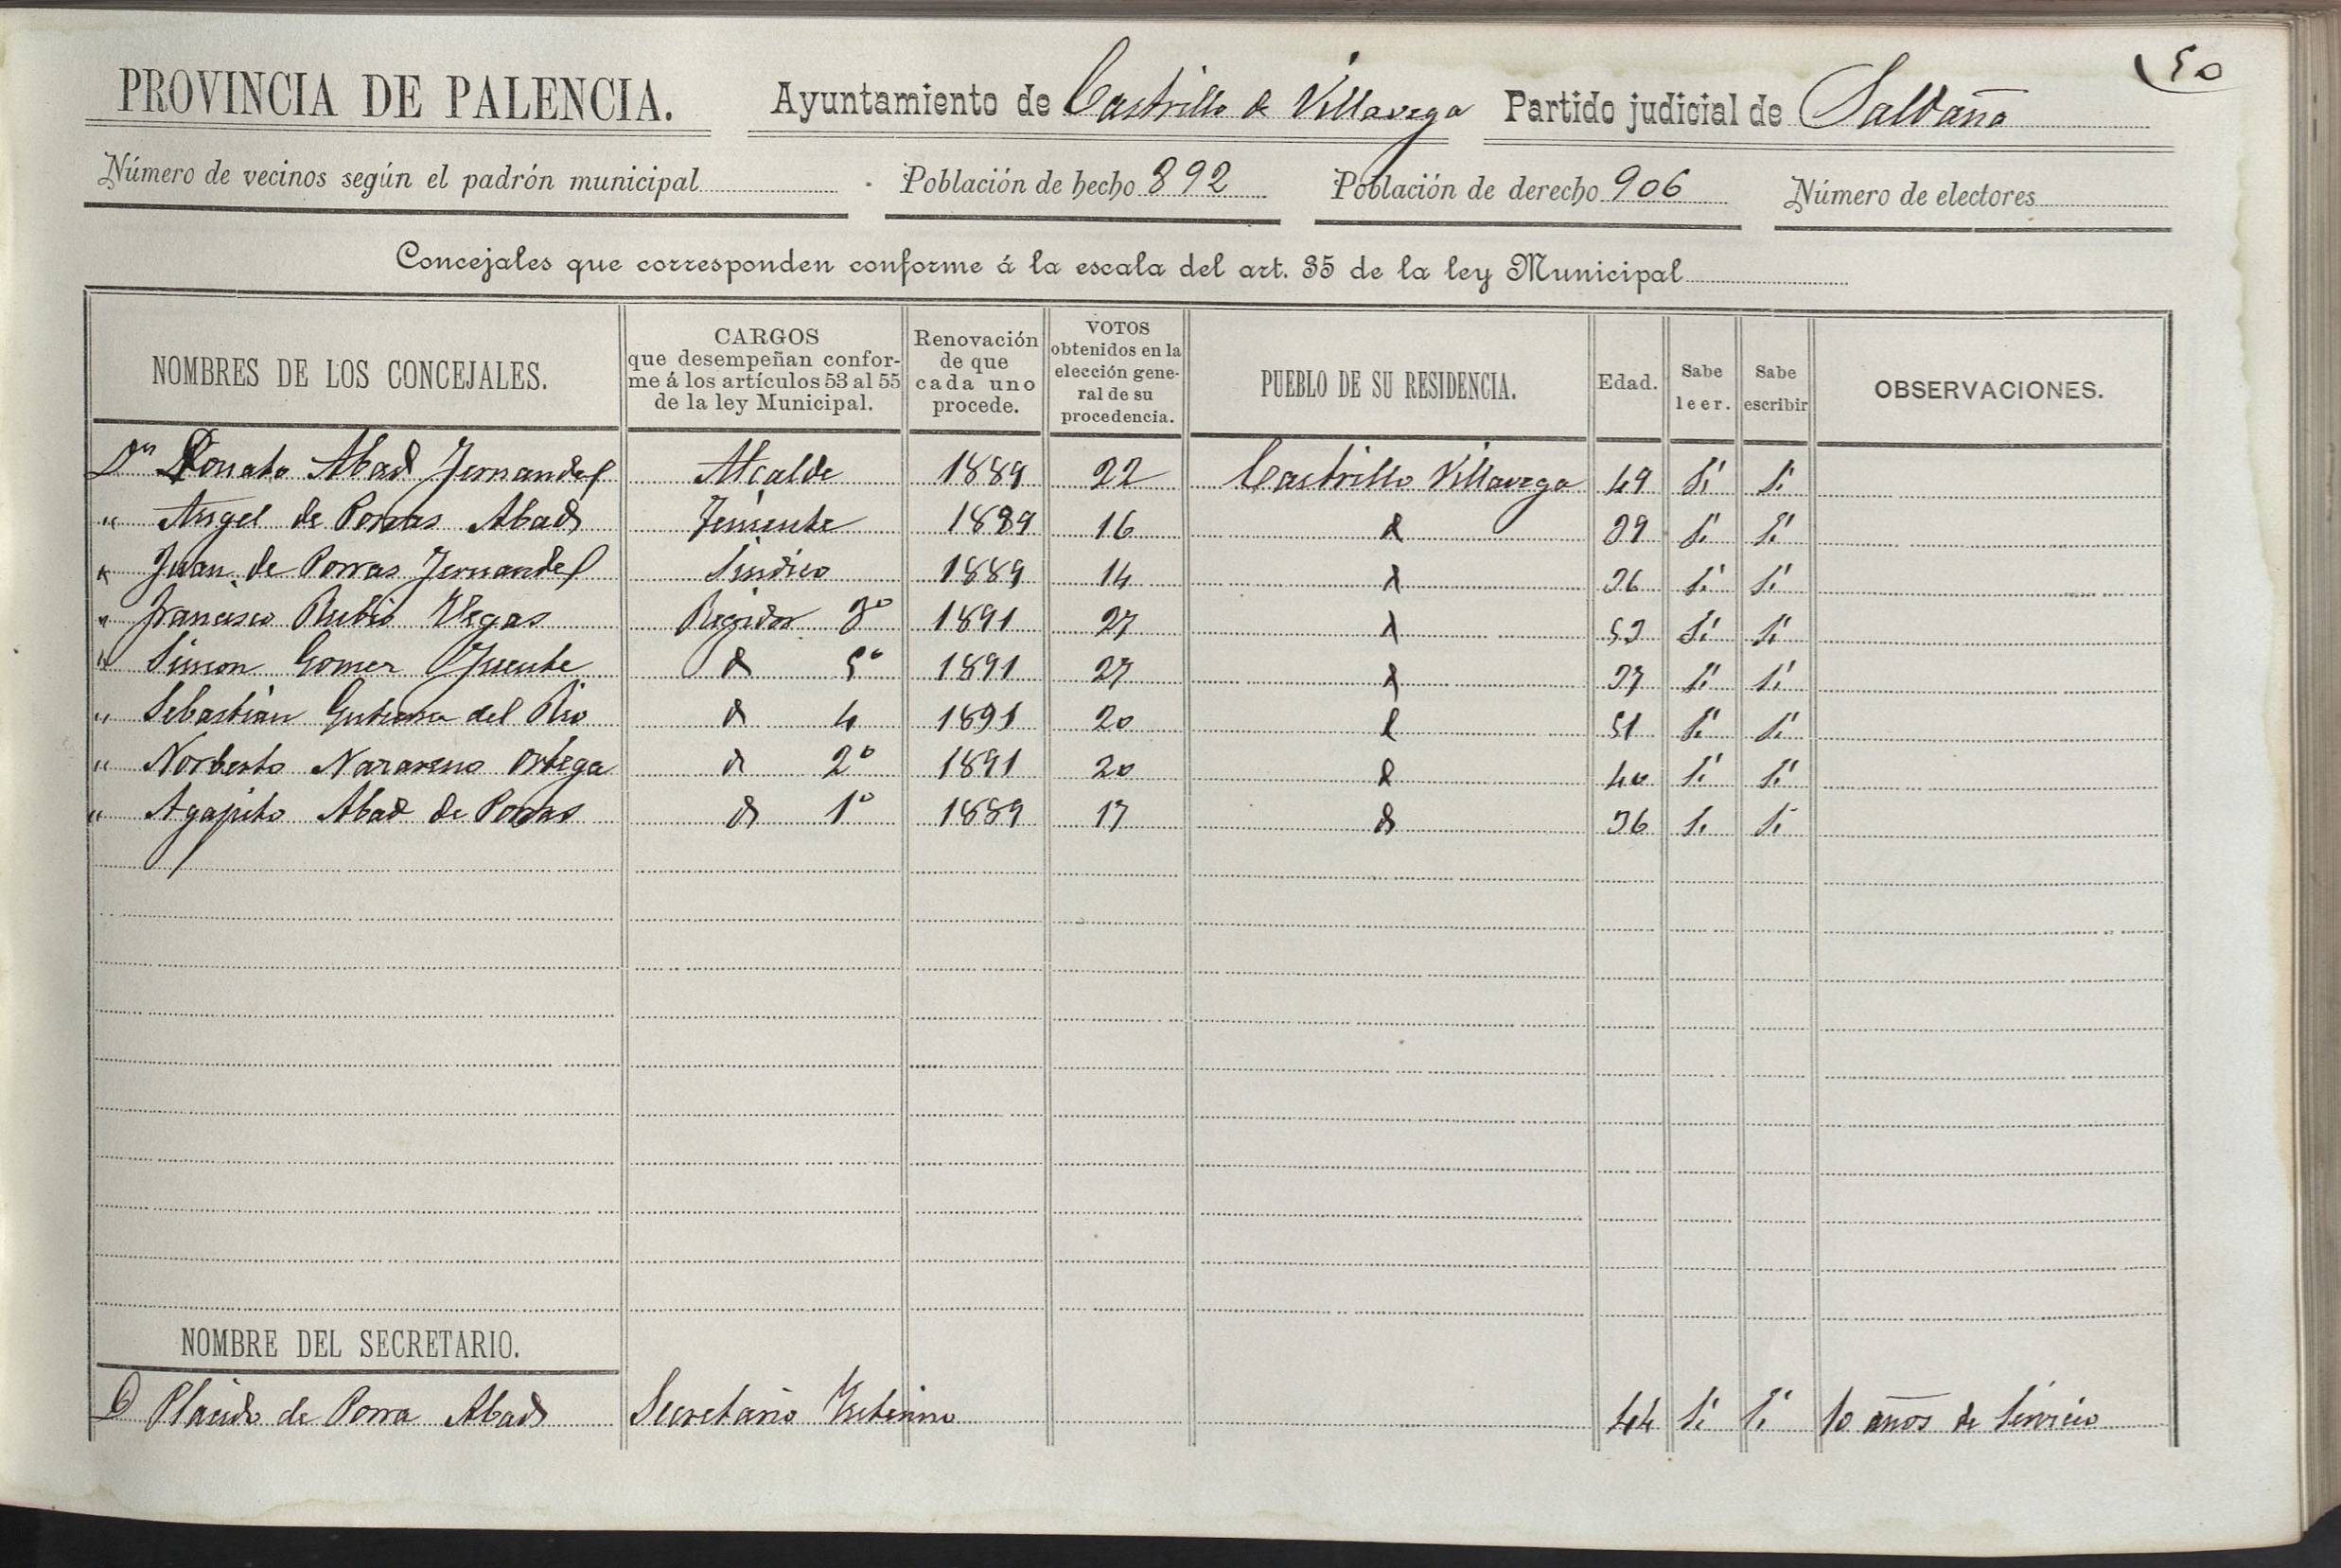 50
PROVINCIA DE PALENCIA. Ayuntamiento de Castrillo de Villavega Partido judicial de Saldaña
Número de vecinos según el padrón municipal Población de hecho 892 Población de derecho 906 Número de electores
Concejales que corresponden conforme á la escala del art. 35 de la ley Municipal
NOMBRES DE LOS CONCEJALES. CARGOS que desempeñan conforme á los artículos 53 al 55 de la ley Municipal. Renovación de que cada uno procede. VOTOS obtenidos en la elección general de su procedencia. PUEBLO DE SU RESIDENCIA. Edad. Sabe leer. Sabe escribir OBSERVACIONES.
Dn Donato Abad Fernandez Alcalde 1889 22 Castrillo Villavega 49 Si Si
" Angel de Porras Abad Teniente 1889 16 d 39 Si Si
" Juan de Porras Fernandez Sindico 1889 14 d 36 Si Si
" Francisco Rubio Vegas Regidor 3º 1891 27 d 53 Si Si
" Simon Gomez Puente d 5º 1891 27 d 37 Si Si
" Sebastián Gutierrez del Rio d 4 1891 20 d 51 Si Si
" Norberto Nazareno Ortega d 2º 1891 20 d 40 Si Si
" Agapito Abad de Porras d 1º 1889 17 d 36 Si Si
NOMBRE DEL SECRETARIO.
D Placido de Porra Abad Secretario Interino 44 Si Si 10 años de Servicio